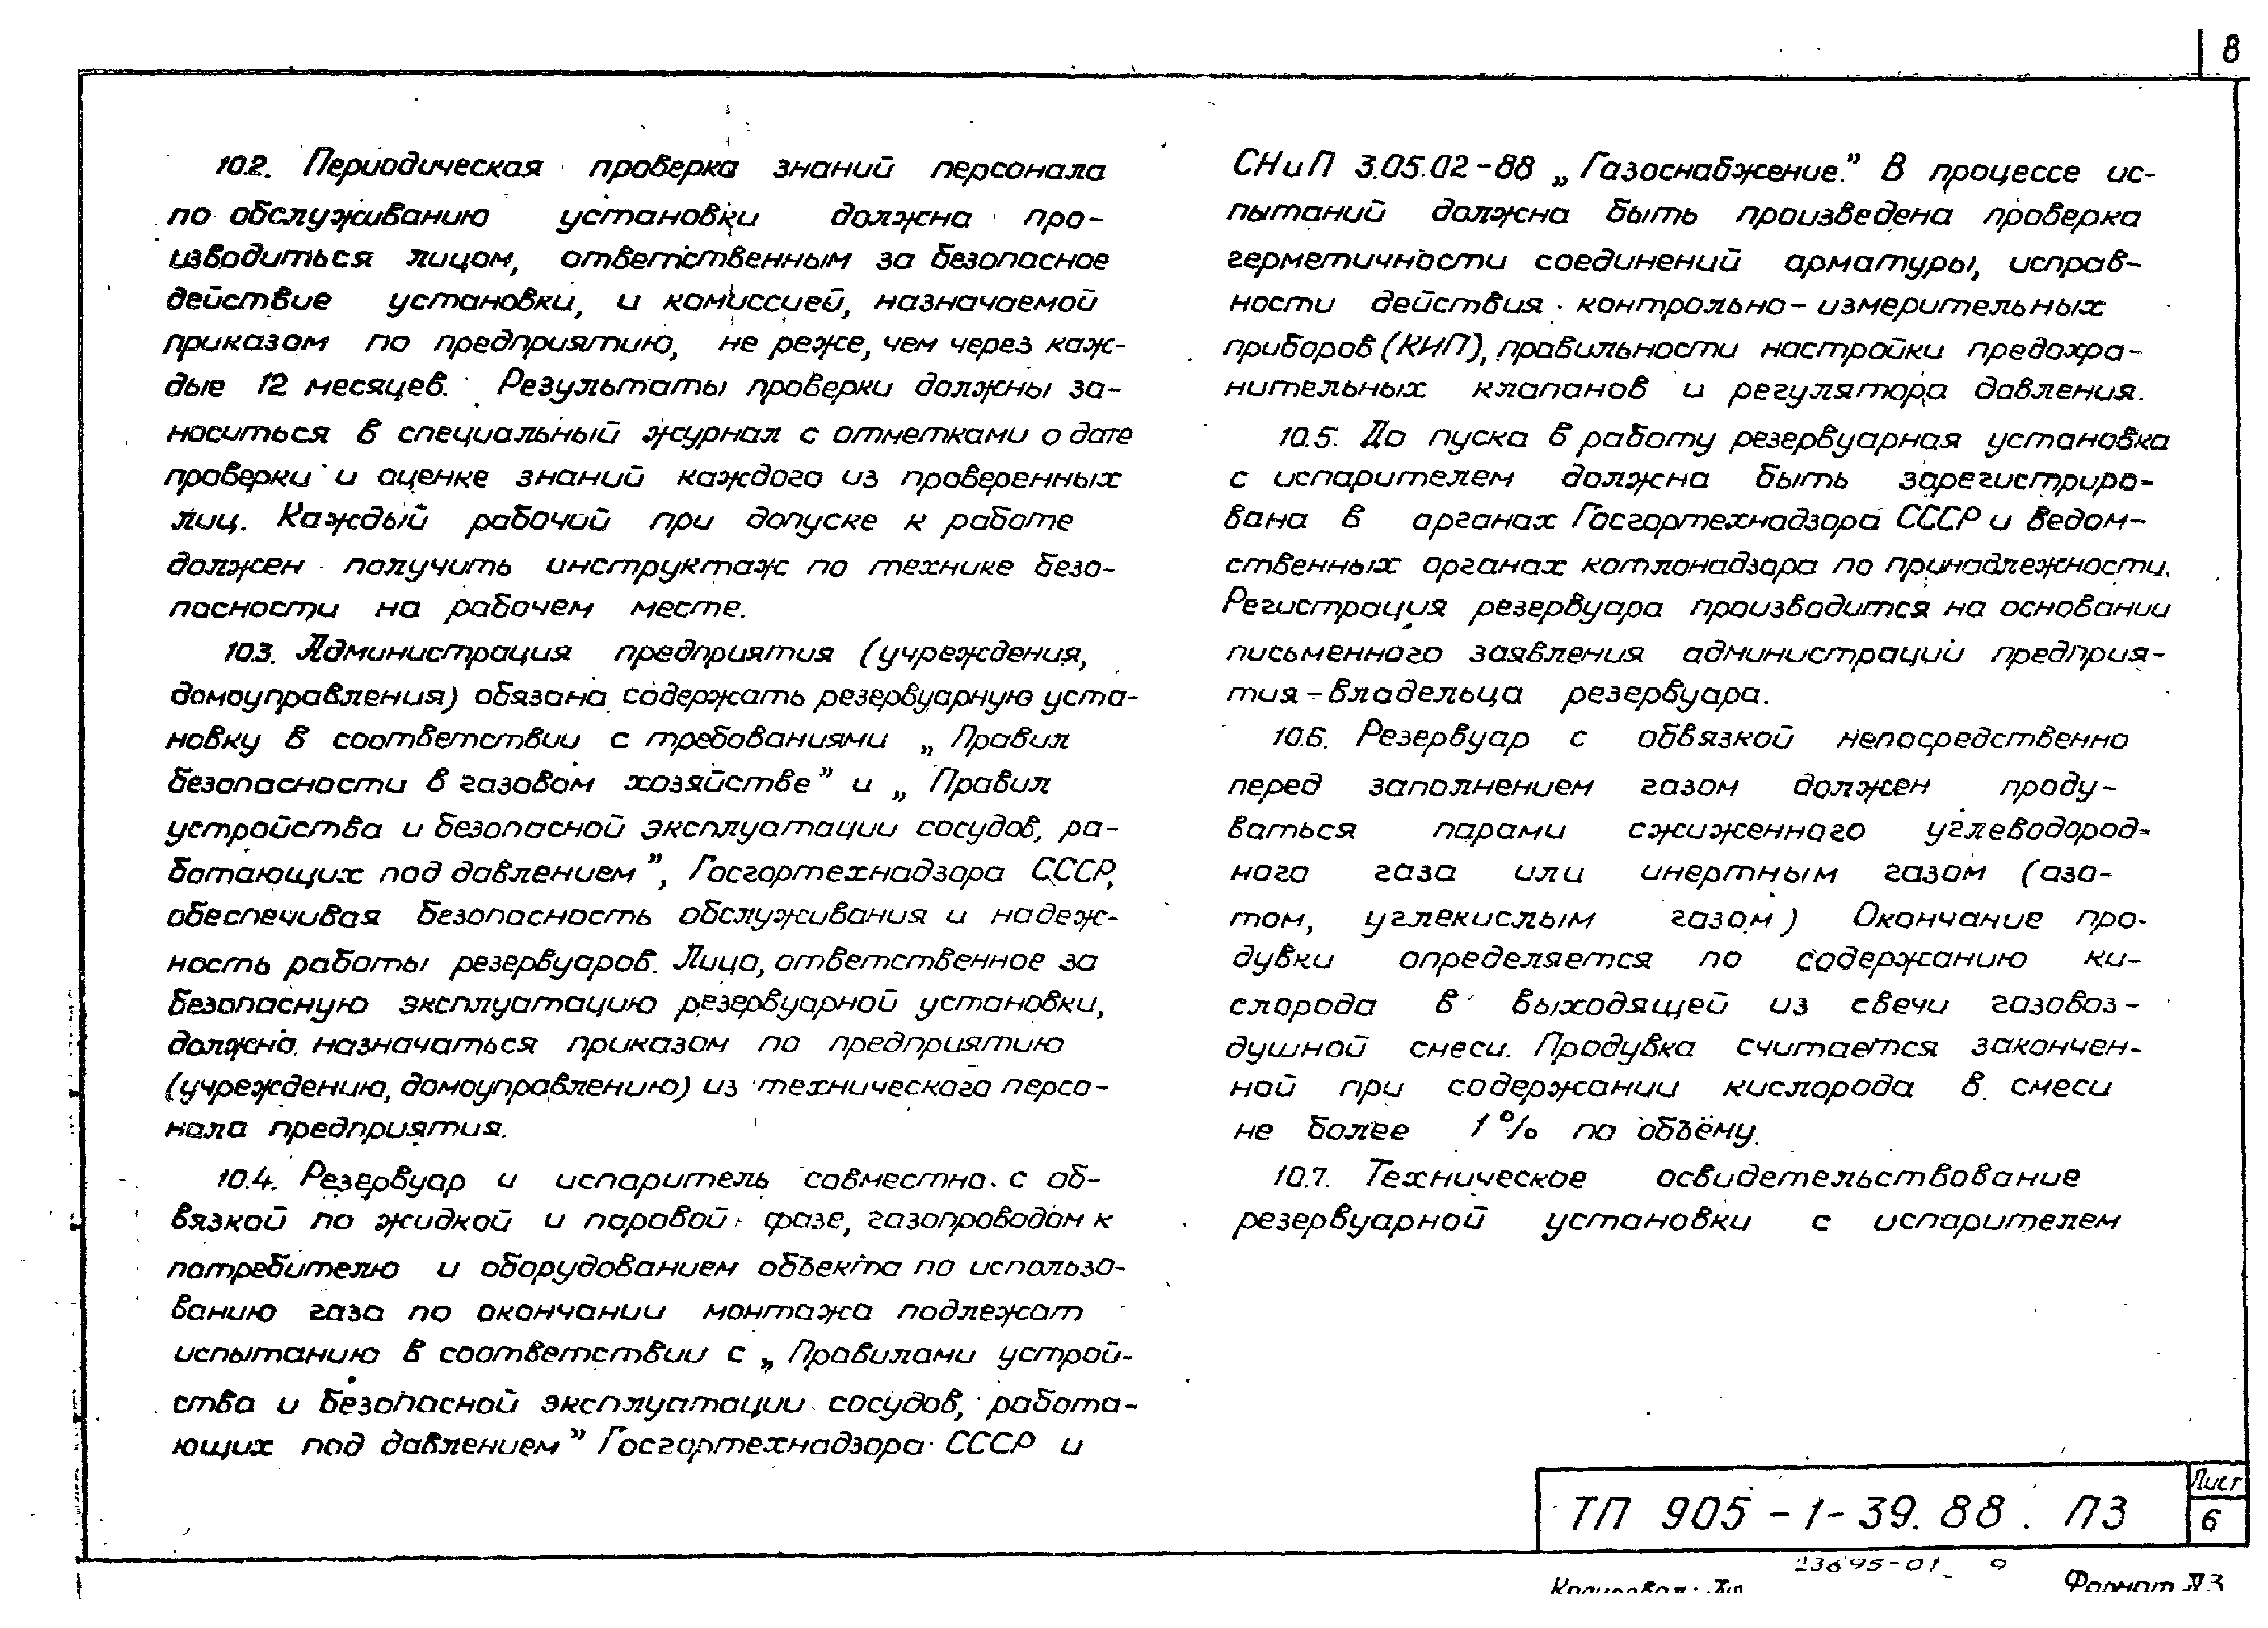 8
10.2. Периодическая проверка знаний персонала
по обслуживанию установки должна про-
изводиться лицом, ответственным за безопасное
действие установки, и комиссией, назначаемой
приказом по предприятию, не реже, чем через каж-
дые 12 месяцев. Результаты проверки должны за-
носиться в специальный журнал с отметками о дате
проверки и оценке знаний каждого из проверенных
лиц. Каждый рабочий при допуске к работе
должен получить инструктаж по технике безо-
пасности на рабочем месте.
10.3. Администрация предприятия (учреждения,
домоуправления) обязана содержать резервуарную уста-
новку в соответствии с требованиями „Правил
безопасности в газовом хозяйстве” и „Правил
устройства и безопасной эксплуатации сосудов, ра-
ботающих под давлением”, Госгортехнадзора СССР,
обеспечивая безопасность обслуживания и надеж-
ность работы резервуаров. Лицо, ответственное за
безопасную эксплуатацию резервуарной установки,
должно назначаться приказом по предприятию
(учреждению, домоуправлению) из технического персо-
нала предприятия.
10.4. Резервуар и испаритель совместно с об-
вязкой по жидкой и паровой фазе, газопроводом к
потребителю и оборудованием объекта по использо-
ванию газа по окончании монтажа подлежат
испытанию в соответствии с „Правилами устрой-
ства и безопасной эксплуатации сосудов, работа-
ющих под давлением” Госгортехнадзора СССР и
СНиП 3.05.02-88 „Газоснабжение.” В процессе ис-
пытаний должна быть произведена проверка
герметичности соединений арматуры, исправ-
ности действия контрольно-измерительных
приборов (КИП), правильности настройки предохра-
нительных клапанов и регулятора давления.
10.5. До пуска в работу резервуарная установка
с испарителем должна быть зарегистриро-
вана в органах Госгортехнадзора СССР и ведом-
ственных органах котлонадзора по принадлежности.
Регистрация резервуара производится на основании
письменного заявления администрации предприя-
тия-владельца резервуара.
10.6. Резервуар с обвязкой непосредственно
перед заполнением газом должен проду-
ваться парами сжиженного углеводород-
ного газа или инертным газом (азо-
том, углекислым газом) Окончание про-
дувки определяется по содержанию ки-
слорода в выходящей из свечи газовоз-
душной смеси. Продувка считается закончен-
ной при содержании кислорода в смеси
не более 1% по объёму.
10.7. Техническое освидетельствование
резервуарной установки с испарителем
ТП 905-1-39.88. ПЗ
Лист
6
23695-01 9
Копировал:
Формат А3